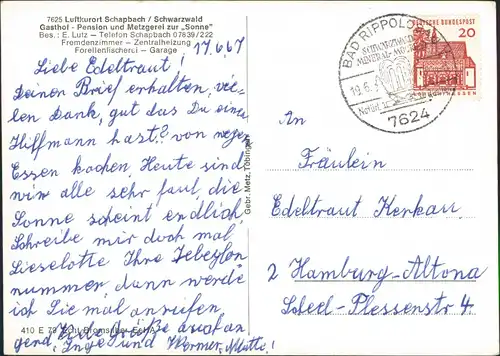 7625 Luftkurort Schapbach / Schwarzwald
Gasthof - Pension und Metzgerei zur „Sonne"
Bes.: E. Lutz — Telefon Schapbach 07839/222
Fremdenzimmer — Zentralheizung
Forellenfischerei — Garage
17.6.67
Liebe Edeltraut!
Deinen Brief erhalten, vie-
len Dank, gut das Du einen
Hiffmann hast? von wegen
Essen kochen. Heute sind
wir alle sehr faul die
Sonne scheint endlich.
Schreibe mir doch mal
Lieselotte Ihre Telefon
nummer, dann werde
ich Sie mal anrufen
410 E 79 Echt Bromsilber
Grüße auch an-
gend Inge und Werner, Mutti!
Gebr. Metz, Tübingen
BAD RIPPOLDSAU
MINERAL-MOOR
7624
DEUTSCHE BUNDESPOST
20
An
Fräulein
Edeltraut Kenkau
2 Hamburg-Altona
Scheel-Plessenstr. 4